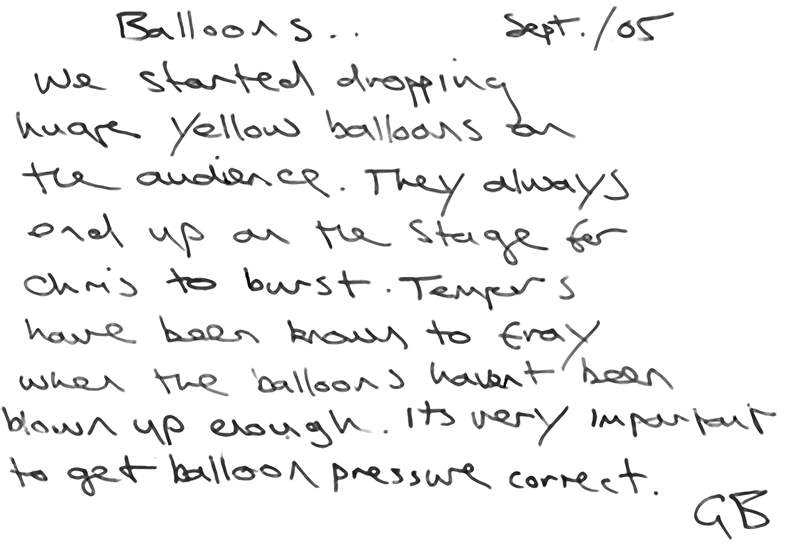 Balloons.. Sept./05
We started dropping
huge yellow balloons on
the audience. They always
end up on the stage for
Chris to burst. Tempers
have been known to fray
when the balloons havent been
blown up enough. Its very important
to get balloon pressure correct.
GB